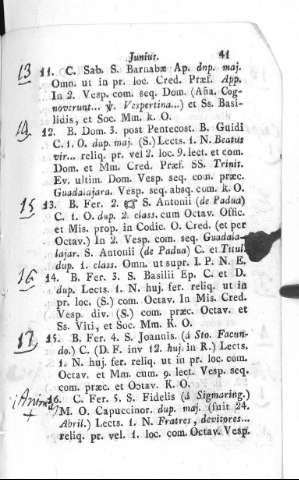 Junius. 41
13 11. C. Sab. S. Barnabæ Ap. dnp. maj.
Omn. ut in pr. loc. Cred. Præf. App.
In 2. Vesp. com. seq. Dom. (Aña. Cog-
noverunt... ℣. Vespertina...) et Ss. Basi-
lidis, et Soc. Mm. k. O.
14 12. B. Dom. 3. post Pentecost. B. Guidi
C. 1. O. dup. maj. (S.) Lects. 1. N. Beatus
vir... reliq. pr. vel 2. loc. 9. lect. et com.
Dom. et Mm. Cred. Præf. SS. Trinit.
Ev. ultim. Dom. Vesp. seq. com. præc.
Guadalajara. Vesp. seq. absq. com. k. O.
15 13. B. Fer. 2. ☞ S. Antonii (de Padua)
C. 1. O. dup. 2. class. cum Octav. Offic.
et Mis. prop. in Codic. O. Cred. (et per
Octav.) In 2. Vesp. com. seq. Guadala-
lajar. S. Antonii (de Padua) C. et Titul.
dup. 1. class. Omn. ut supr. I. P. N. E.
16 14. B. Fer. 3. S. Basilii Ep. C. et D.
dup. Lects. 1. N. huj. fer. reliq. ut in
pr. loc. (S.) com. Octav. In Mis. Cred.
Vesp. div. (S.) com. præc. Octav. et
Ss. Viti, et Soc. Mm. K. O.
17 15. B. Fer. 4. S. Joannis. (á Sto. Facun-
do.) C. (D. F. inv 12. huj. in R.) Lects.
1. N. huj. fer. reliq. ut in pr. loc. com.
Octav. et Mm. cum. 9. lect. Vesp. seq.
com. præc. et Octav. K. O.
16. C. Fer. 5. S. Fidelis (á Sigmaring.)
M. O. Capuccinor. dup. maj. (fuit 24.
Abril.) Lects. 1. N. Fratres, devitores...
reliq. pr. vel. 1. loc. com. Octav. Vesp.